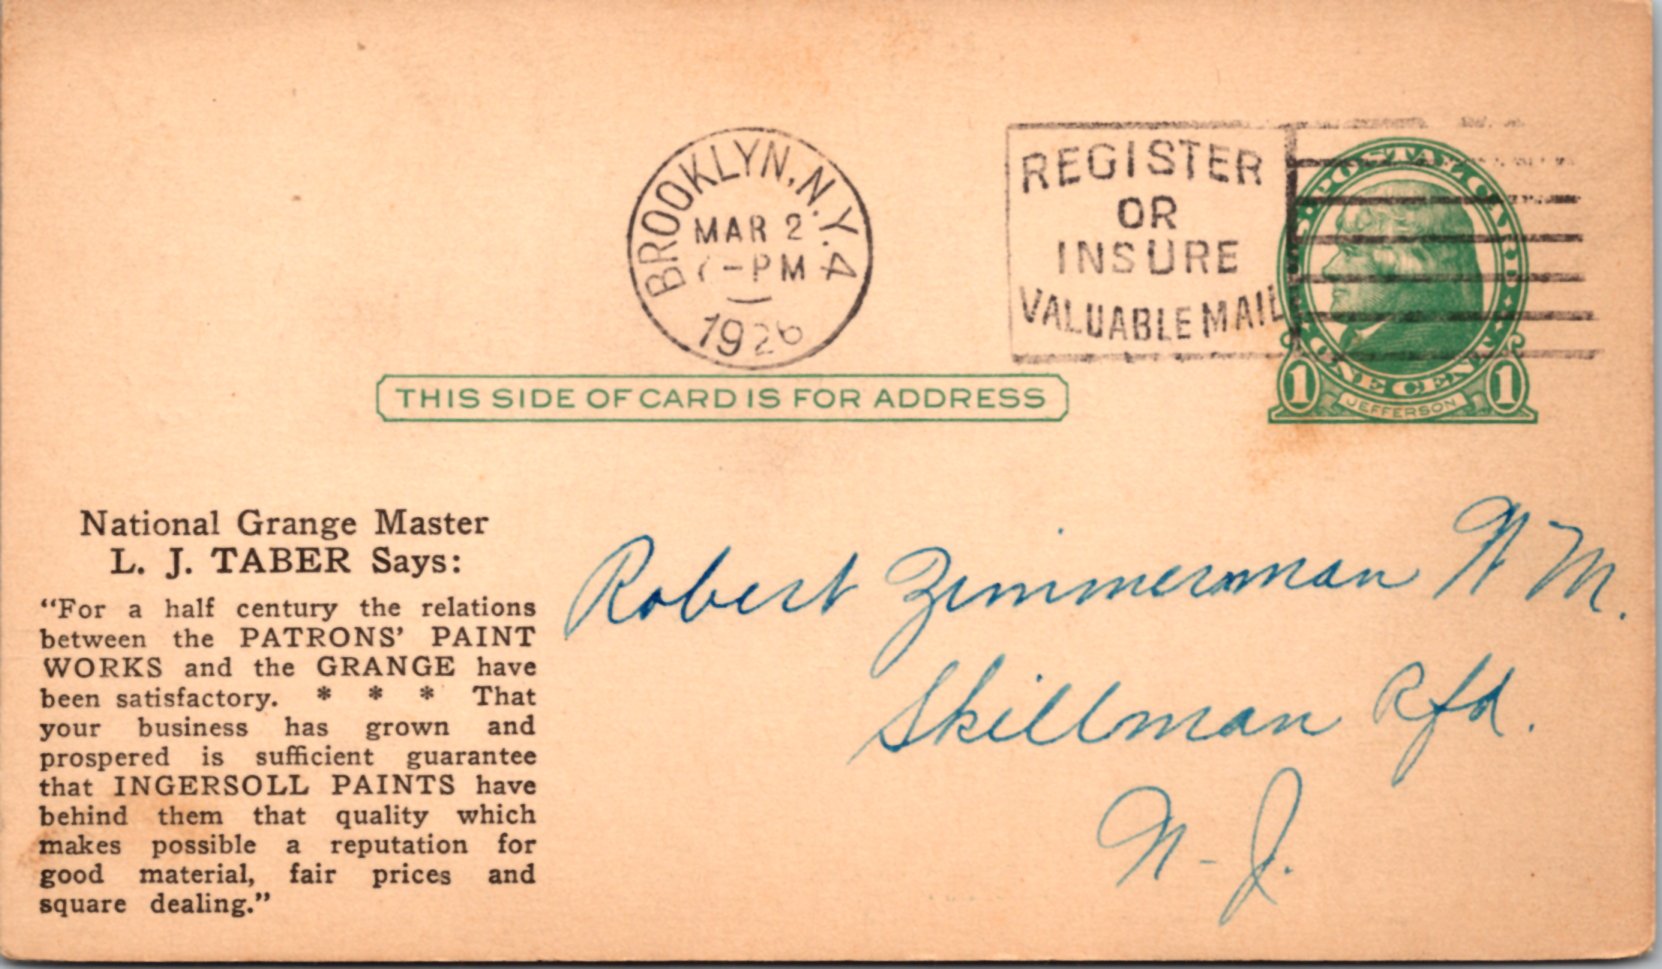 BROOKLYN, N.Y. 4
MAR 2
7-PM
1926
REGISTER
OR
INSURE
VALUABLE MAIL
U.S. POSTAL CARD
ONE CENT
1 JEFFERSON 1
THIS SIDE OF CARD IS FOR ADDRESS
National Grange Master
L. J. TABER Says:
“For a half century the relations
between the PATRONS’ PAINT
WORKS and the GRANGE have
been satisfactory. * * * That
your business has grown and
prospered is sufficient guarantee
that INGERSOLL PAINTS have
behind them that quality which
makes possible a reputation for
good material, fair prices and
square dealing.”
Robert Zimmerman W M.
Skillman Rfd.
N-J.